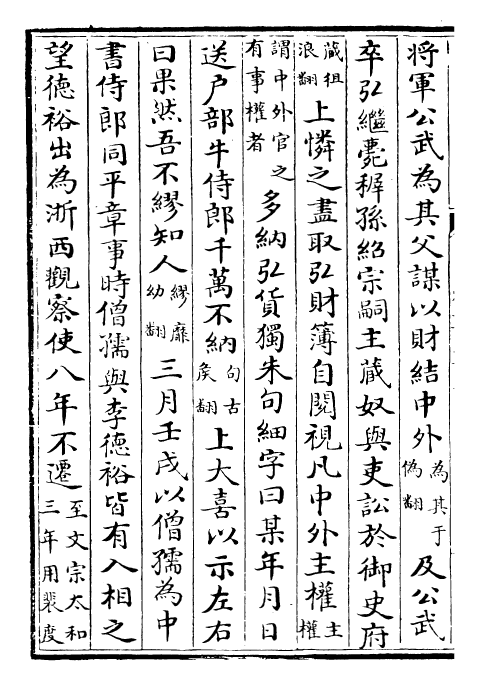 將軍公武為其父謀以財結中外為其于偽翻及公武
卒弘繼薨穉孫紹宗嗣主藏奴與吏訟於御史府
藏徂浪翻上憐之盡取弘財簿自閱視凡中外主權主權
謂中外官之有事權者多納弘貨獨朱句細字曰某年月日
送户部牛侍郎千萬不納句古候翻上大喜以示左右
曰果然吾不繆知人繆靡幼翻三月壬戌以僧孺為中
書侍郎同平章事時僧孺與李德裕皆有入相之
望德裕出為浙西觀察使八年不遷至文宗太和三年用裴度